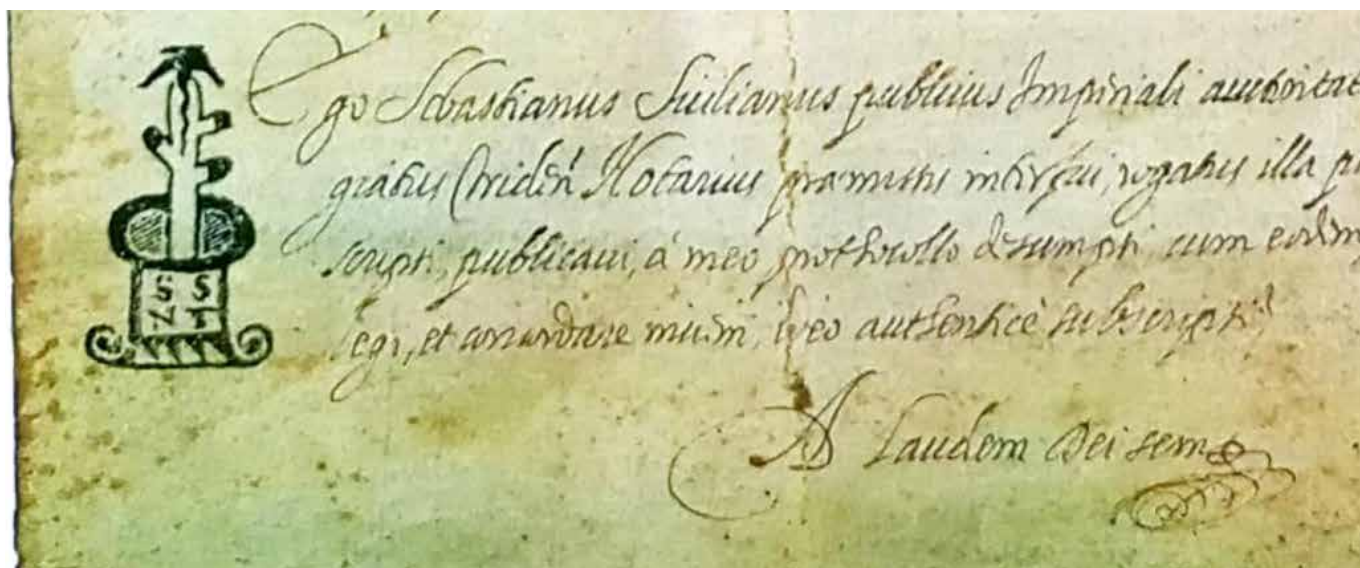 S S
N T
Ego Sebastianus Sicilianus publicus Imperiali auctoritat
giatus Triden. Notarius præmissis interfui, rogatus illa
scripsi, publicaui, à meo prothocollo desumpsi, cum eodem
legi, et concordare inueni, ideo authenticè subscripsi
Ad Laudem Dei semp